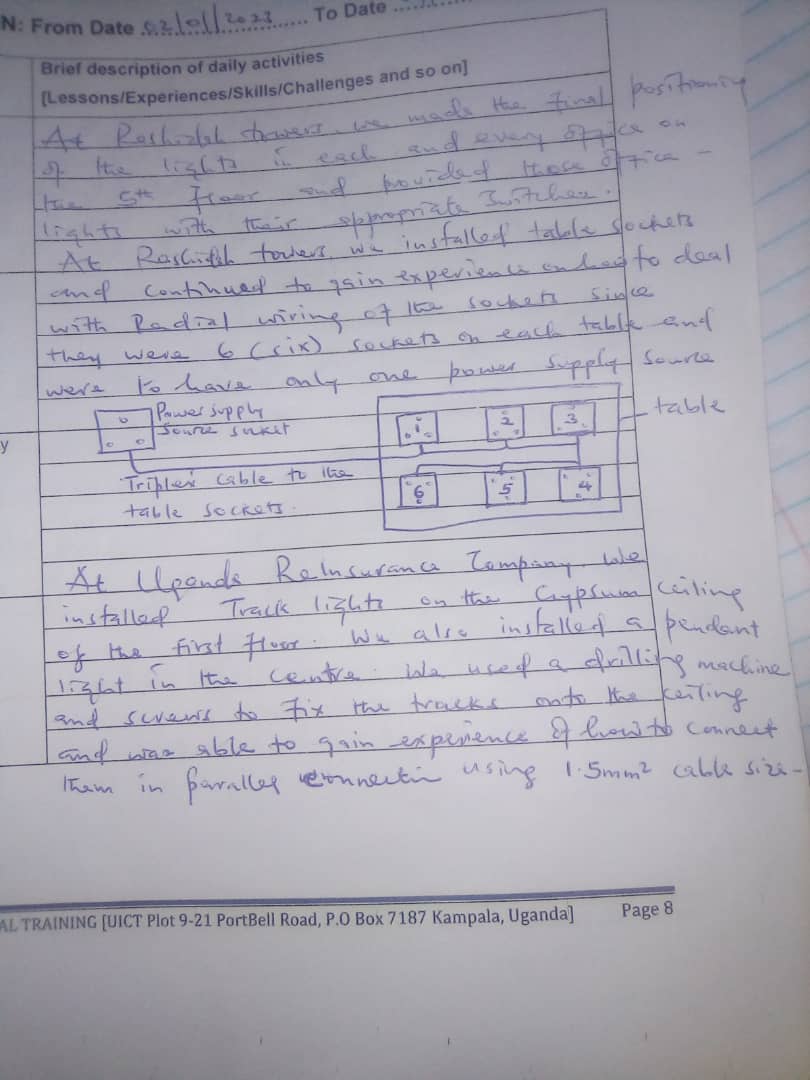 N: From Date 02/01/2023 ...... To Date ......
Brief description of daily activities
[Lessons/Experiences/Skills/Challenges and so on]
At Rashidah towers, we made the final positioning
of the lights in each and every office on
the 5th floor and provided those office -
lights with their appropriate Switches.
At Rashidah towers, we installed table sockets
and continued to gain experience on how to deal
with Radial wiring of the sockets since
they were 6 (six) sockets on each table and
were to have only one power supply source
Power supply
source socket
1 2 3
table
y
Triplex cable to the
table sockets.
6 5 4
At Uganda ReInsurance Company. We
installed Track lights on the Gypsum ceiling
of the first floor. We also installed a pendant
light in the centre. We used a drilling machine
and screws to fix the tracks onto the ceiling
and was able to gain experience of how to connect
them in parallel connectin using 1.5mm² cable size -
AL TRAINING [UICT Plot 9-21 PortBell Road, P.O Box 7187 Kampala, Uganda] Page 8